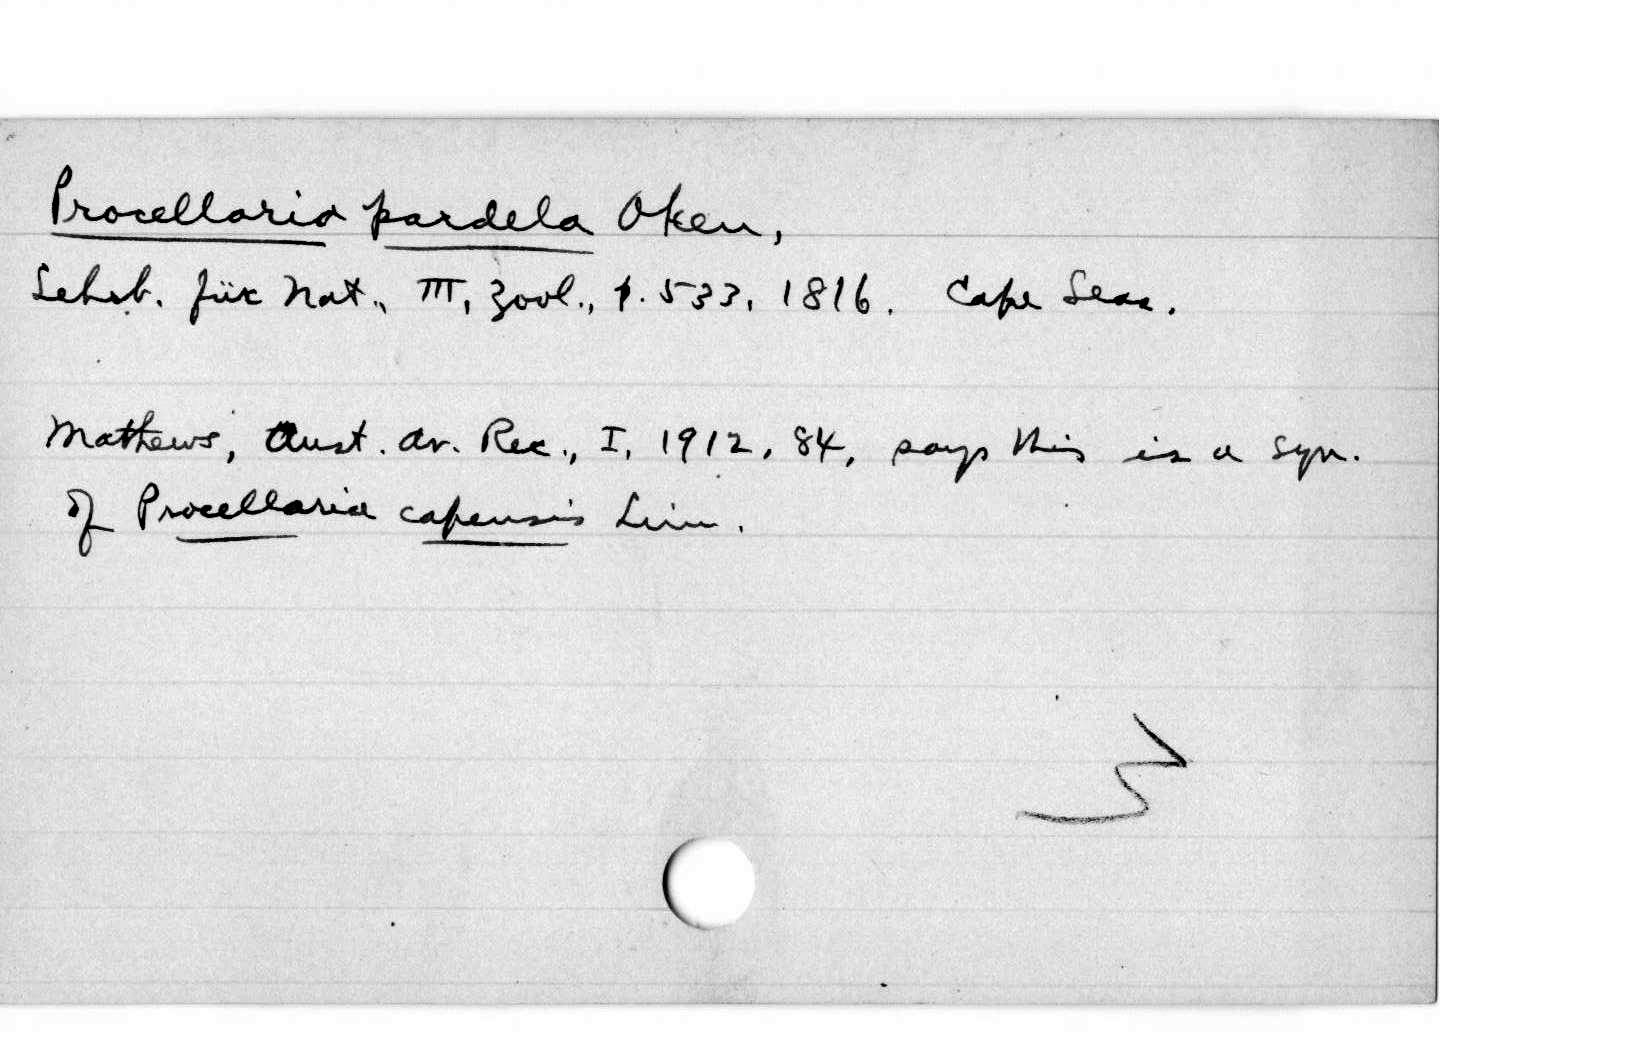 Procellaria pardela Oken,
Lehrb. für Nat., III, Zool., p. 533, 1816. Cape Seas.
Mathews, Aust. Av. Rec., I, 1912, 84, says this is a syn.
of Procellaria capensis Linn.